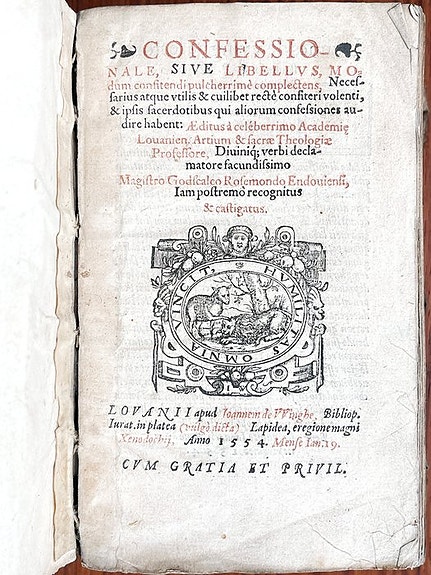 CONFESSIO-
NALE, SIVE LIBELLVS, MO-
dum confitendi pulcherrimè complectens, Neces-
sarius atque vtilis & cuilibet rectè confiteri volenti,
& ipsis sacerdotibus qui aliorum confessiones au-
dire habent: Æditus à celeberrimo Academię
Louanien. Artium & sacræ Theologiæ
Professore, Diuiniq; verbi decla-
matore facundissimo
Magistro Godscalco Rosemondo Endouiensi,
Iam postremò recognitus
& castigatus.
HVMILITAS OMNIA VINCIT.
LOVANII apud Ioannem de VVinghe. Bibliop.
Iurat. in platea (vulgò dicta) Lapidea, è regione magni
Xenodochij. Anno 1554. Mense Ian. 19.
CVM GRATIA ET PRIVIL.